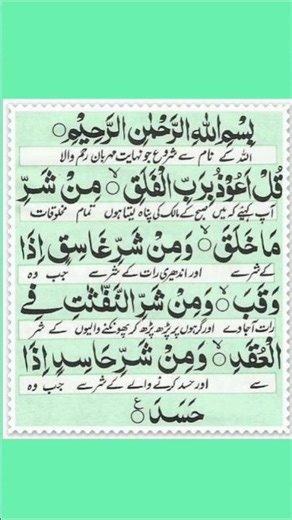 بِسْمِ اللهِ الرَّحْمٰنِ الرَّحِيْمِ○
اللہ کے نام سے شروع جو نہایت مہربان رحم والا
قُلْ اَعُوْذُ بِرَبِّ الْفَلَقِ ۙ مِنْ شَرِّ
آپ کہئے کہ میں صبح کے مالک کی پناہ لیتا ہوں تمام مخلوقات
مَا خَلَقَ ۙ وَمِنْ شَرِّ غَاسِقٍ اِذَا
کے شر سے اور اندھیری رات کے شر سے جب وہ
وَقَبَ ۙ وَمِنْ شَرِّ النَّفّٰثٰتِ فِے
رات آجاوے اور گرہوں پر پڑھ پڑھ کر پھونکنے والیوں کے شر
الْعُقَدِ ۙ وَمِنْ شَرِّ حَاسِدٍ اِذَا
سے اور حسد کرنے والے کے شر سے جب وہ
حَسَدَ ○ۧ